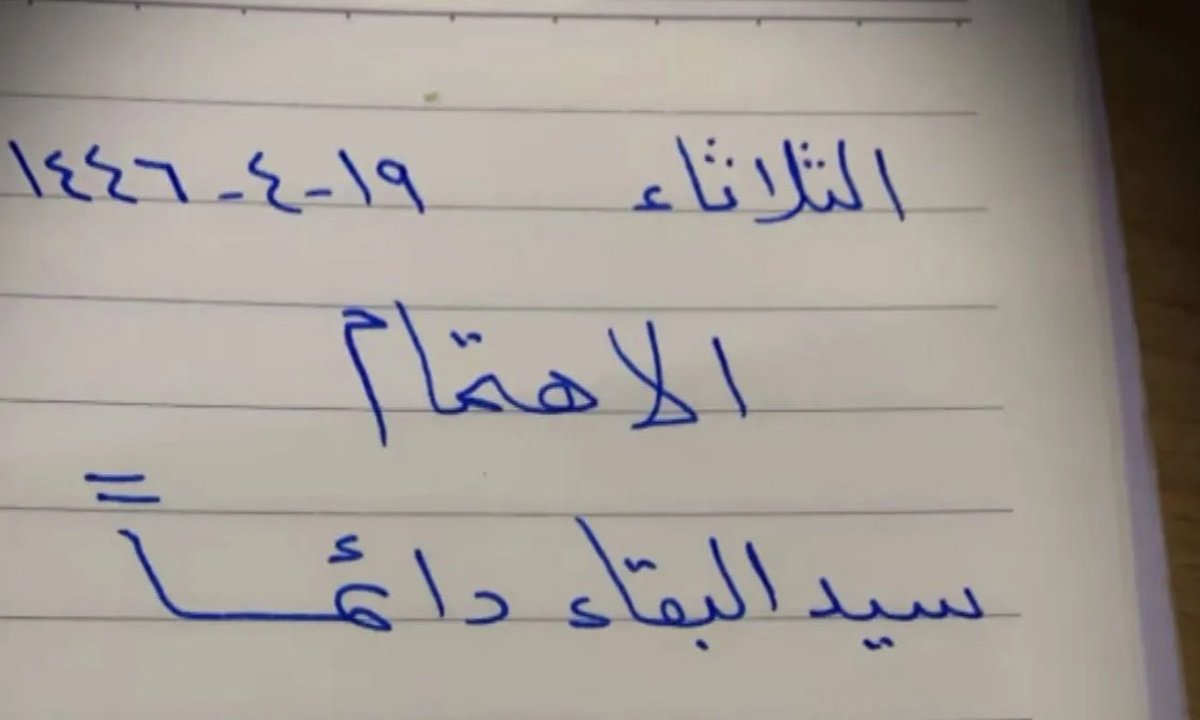 الثلاثاء ١٩-٤-١٤٤٦
الاهتمام
سيد البقاء دائمًا